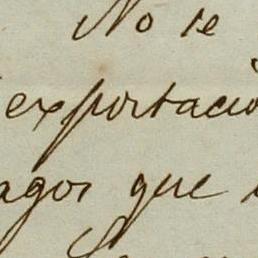 No se
exportació
agos que